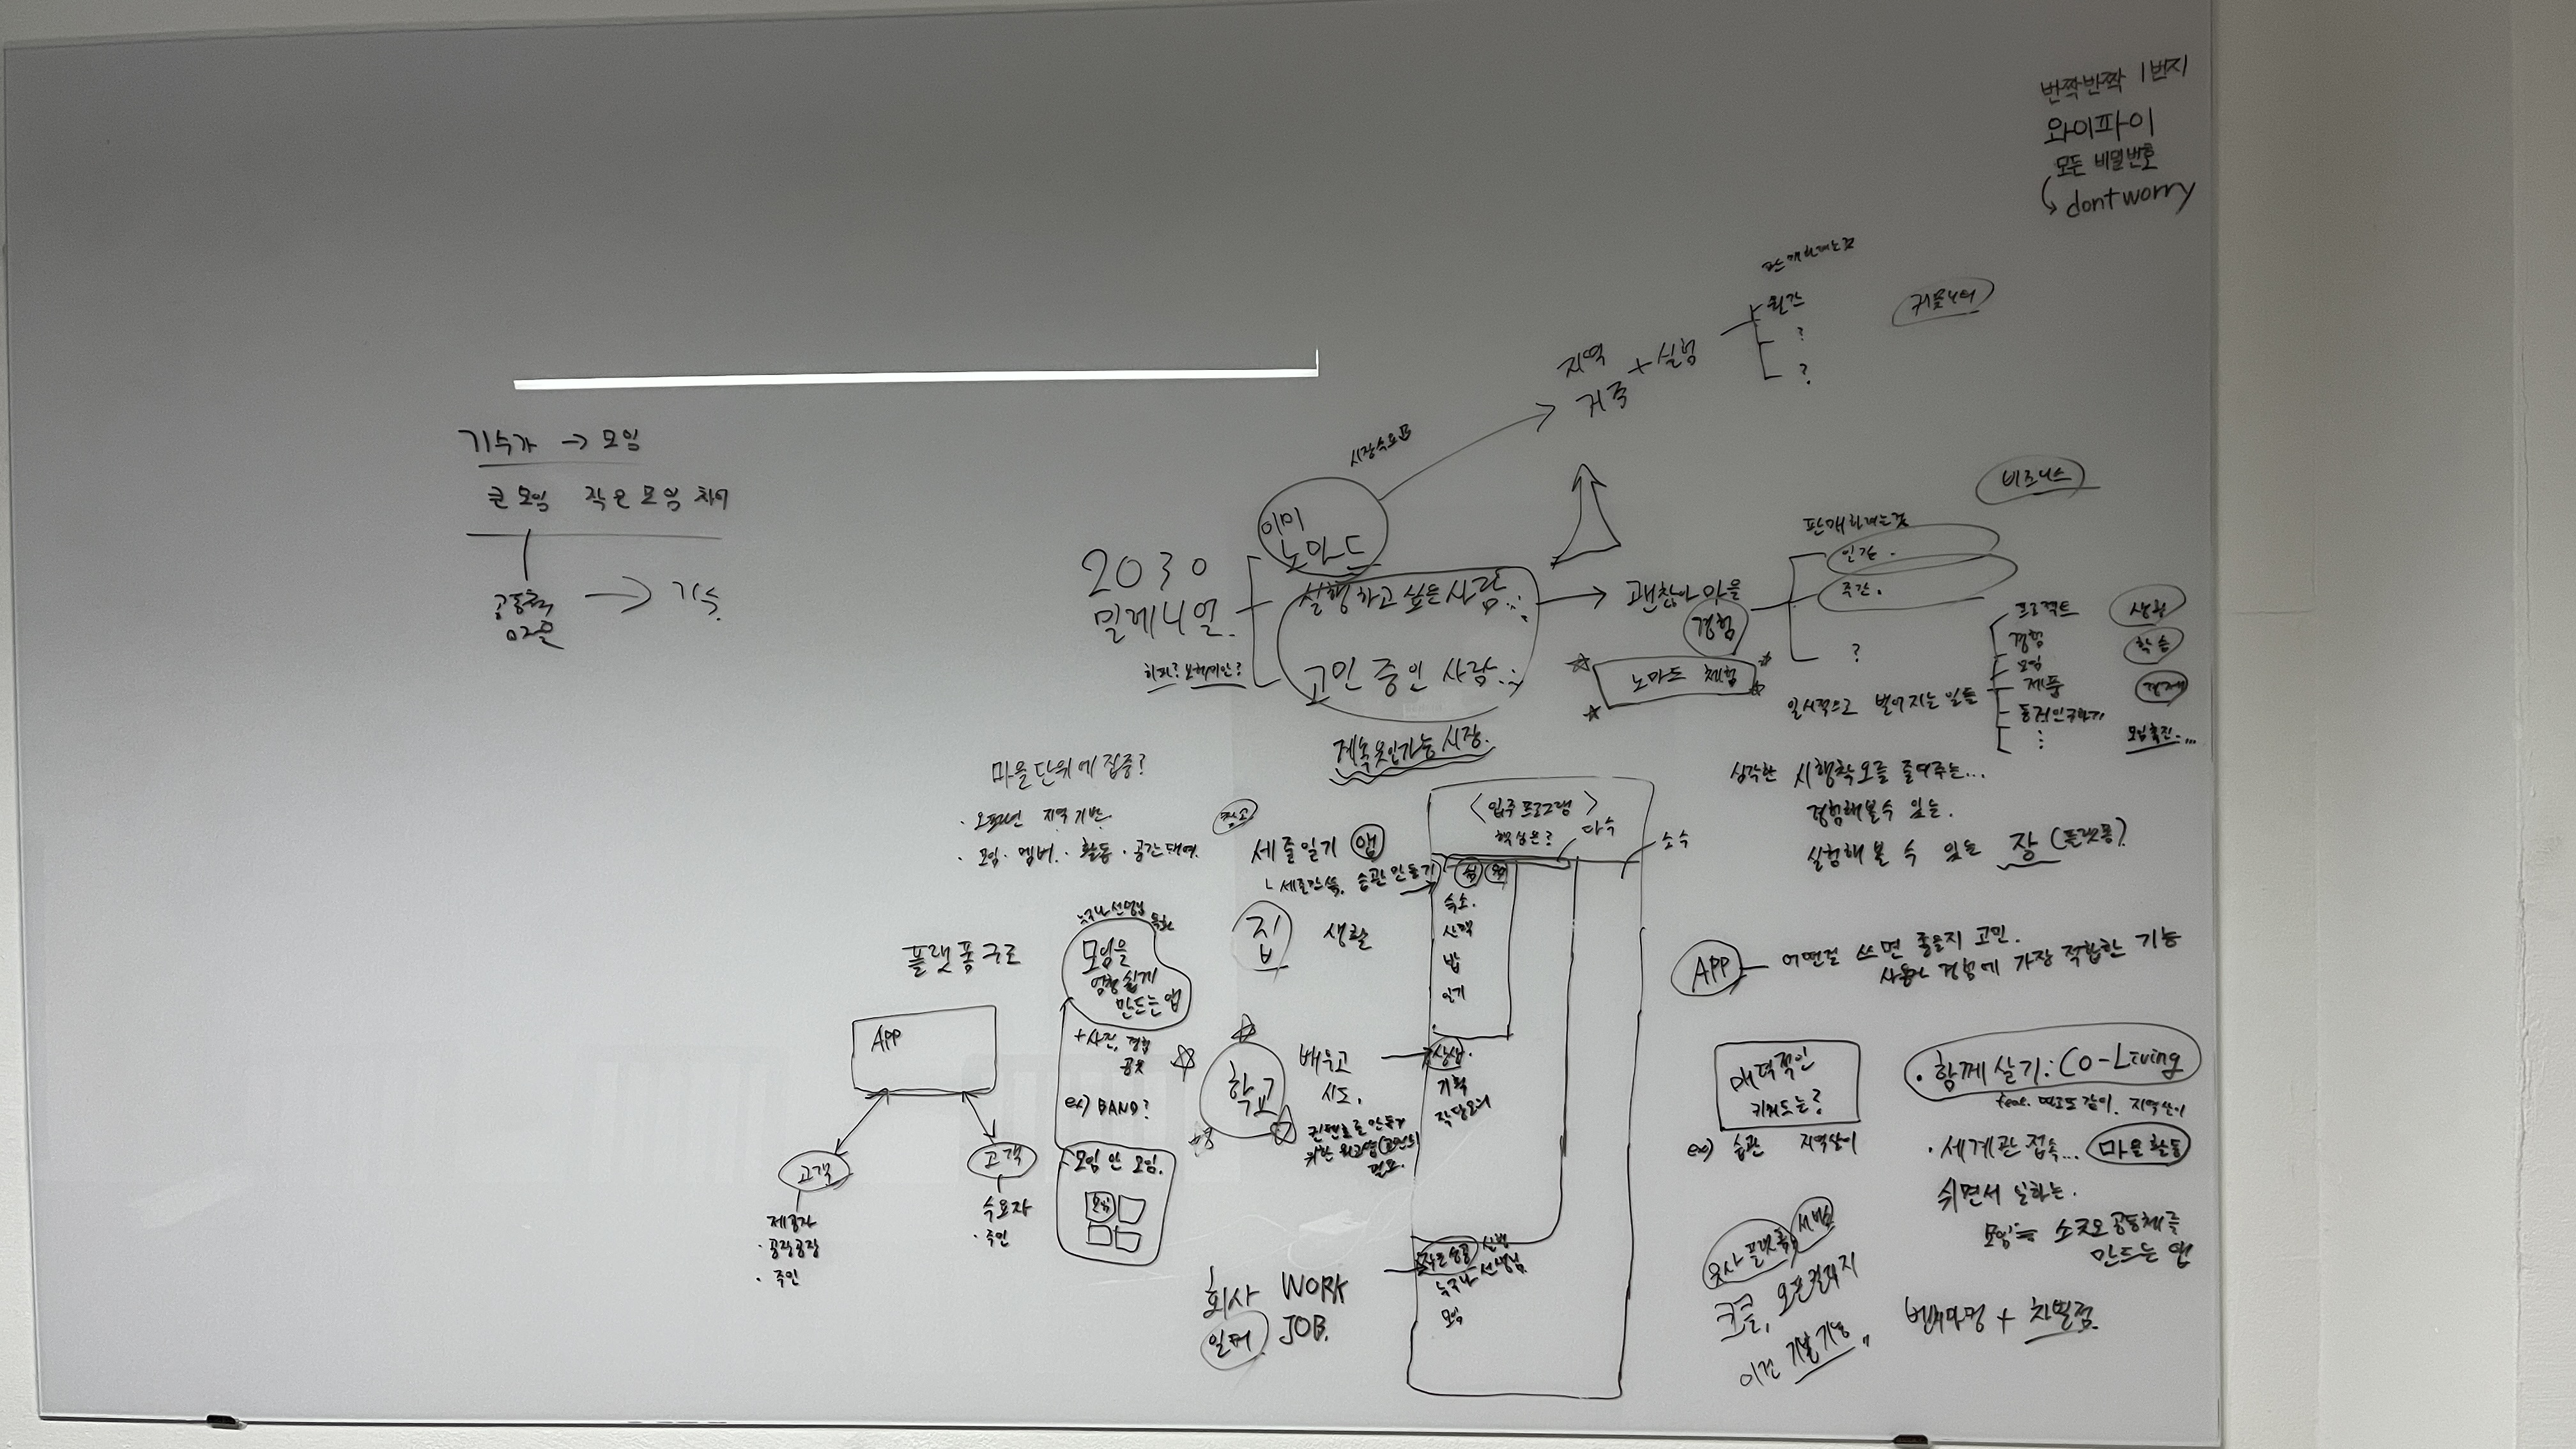 반짝반짝 1번지
와이파이
모든 비밀번호
dont worry
판매하려는 것
월간
?
?
커뮤니티
지역 + 실험
거주
시장수요
기수가 → 모임
큰 모임 작은 모임
→ 기수
비즈니스
이미
노마드
2030
밀레니얼.
실행하고 싶은 사람
고민 중인 사람
히피? 보헤미안?
괜찮아마을
경험
노마드 체험
판매하려는 것
주간.
?
일시적으로 벌어지는 일들
프로젝트
경험
모임
제품
생활
학습
경제
마을 단위에 집중?
· 오프라인 지역 기반
· 모임 · 멤버 · 활동 · 공간대여
세줄일기 앱
습관 만들기
<입주 프로그램>
핵심은?
다수
소수
시행착오를 줄여주는...
경험해볼 수 있는.
실험해 볼 수 있는 장 (플랫폼)
플랫폼 구조
모임을
엄청 쉽게
만드는 앱
+ 사진, 경험
공유
ex) BAND?
집 생활
숙소.
산책
밥
일기
APP
고객
고객
제공자
· 공장공장
· 주민
수요자
· 주민
모임 안 모임.
모임
학교
배우고
시도.
상상.
기획
작당모의
회사 WORK
일터 JOB.
작은 성공
누구나 선생님
모임
APP
어떤걸 쓰면 좋을지 고민.
사용자 경험에 가장 적합한 기능
매력적인
키워드는?
ex) 습관 지역살이
· 함께 살기 : Co-Living
feat. 따로 또 같이. 지역살이
· 세계관 접속... 마을 활동
쉬면서 일하는.
소규모 공동체를
만드는 앱
유사 플랫폼, 서비스
크몽, 오픈컬리지
이건 기본 기능
벤치마킹 + 차별점